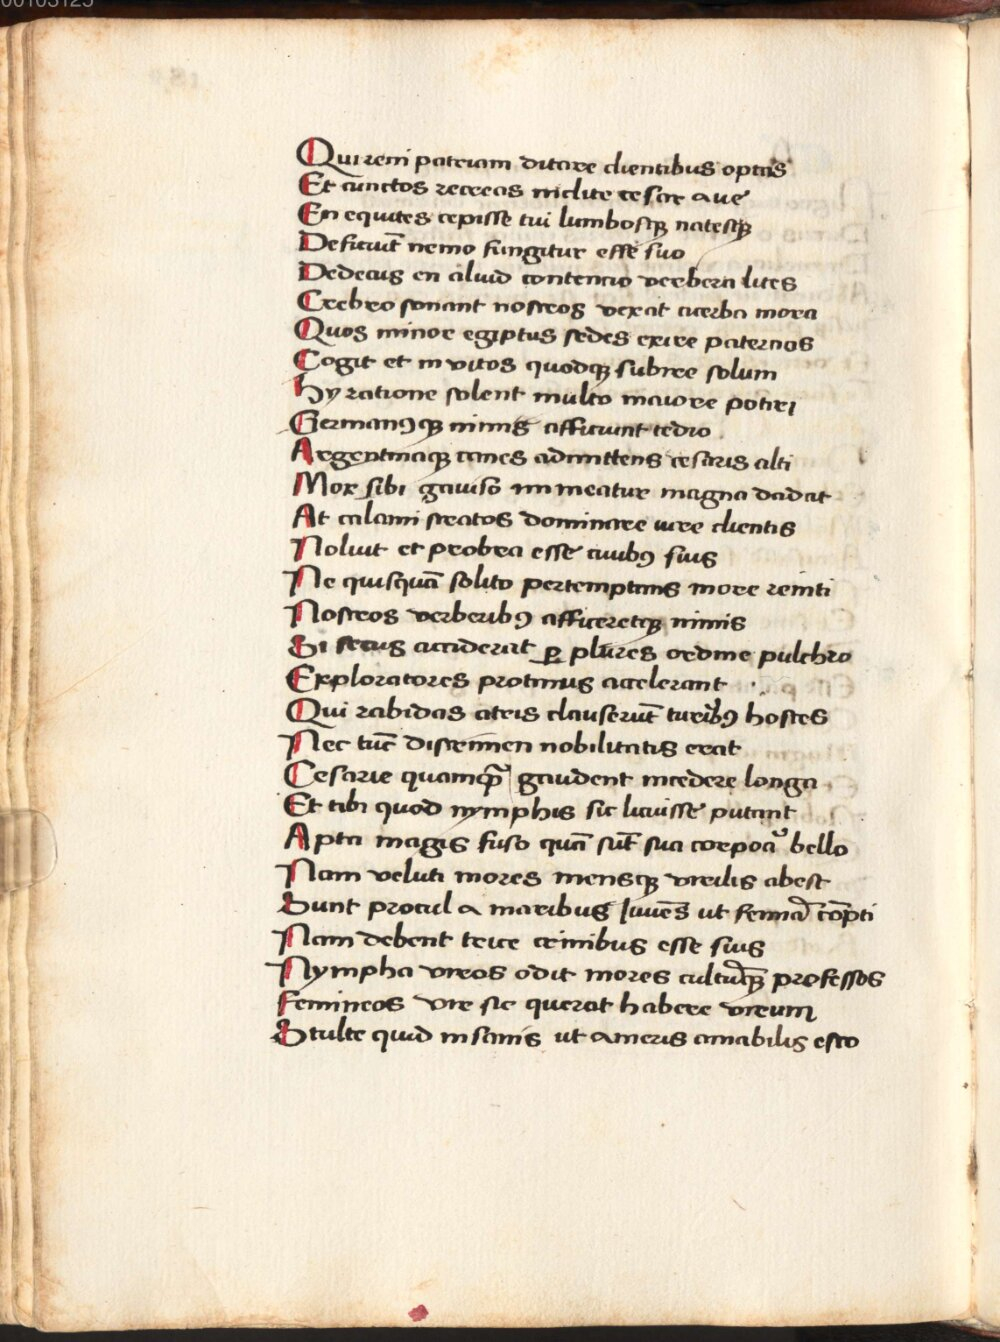 00103125
Qui rem patriam ditare clientibus optas
Et cunctos recreas inclite cesar aue
En equites cepisse tui lumbosqȝ natesqȝ
Deficiūt nemo fungitur esse suo
Dedecus en aliud contentio verbera lites
Crebro sonant nostros vexat acerba mora
Quos minor egiptus sedes exire paternas
Cogit et inuitos quodqȝ subire solum
Hy ratione solent multo maiore potiri
Germanꝰqȝ nimis afficiunt tedio
Argentinaqȝ canes admittens cesaris alti
Mox sibi gauiso magna
At calami stratos dominare iure clientis
Noluit et probra esse ciuibꝰ suis
Ne quisquā solito pertemptans more reniti
Nostros verberibꝰ afficeretqȝ nimis
Si secus acciderit ꝑ plures ordine pulchro
Exploratores protinus accelerant
Qui rabidas atris clauserūt turribꝰ hostes
Nec tūc discrimen nobilitatis erat
Cesarie quamqꝫ gaudent incedere longa
Et tibi quod nymphis sic licuisse putant
Apta magis fuso quā sūt sua corpora bello
Nam veluti mores mensqȝ virilis abest
Sunt procul a maribus iuuēs ut femīa cōpti
Nam debent crinibus esse suis
Nympha viros odit mores cultūqȝ professos
Femineos vir sic querat habere virum
Stulte quid insanis ut ameris amabilis esto